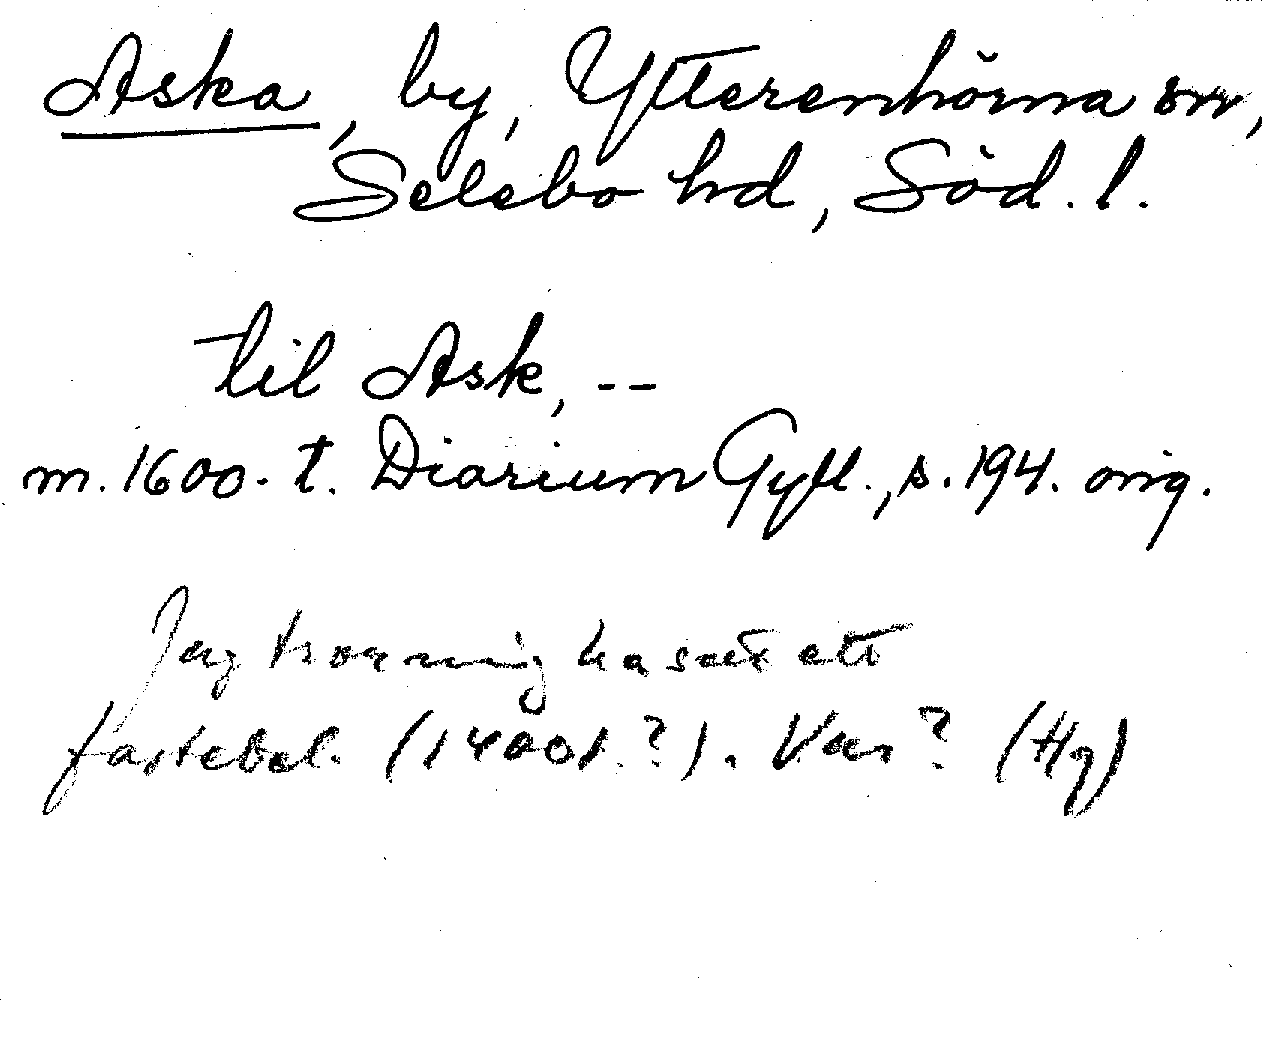 Aska, by, Ytterenhörna sn,
Selebo hd, Söd. l.
til Ask, --
m. 1600-t. Diarium Gyll., s. 194. orig.
Jag tror mig ha sett ett
fastebel. (1400t.?). Var? (Hg)